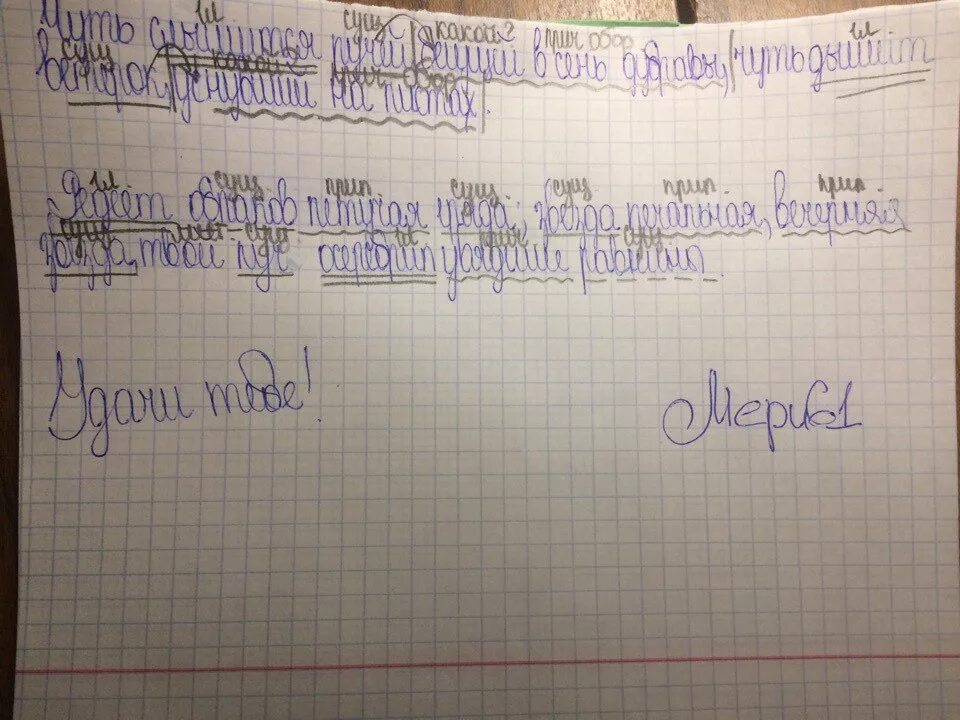 гл сущ какой? прич обор гл
Чуть слышится ручей, бегущий в сень дубравы, чуть дышит
сущ какой? прич обор
ветерок, уснувший на листах.
гл сущ прил сущ сущ прил прил
Редеет облаков летучая гряда; звезда печальная, вечерняя
сущ мест сущ гл прич сущ
звезда, твой луч осеребрил увядшие равнины.
Удачи тебе!